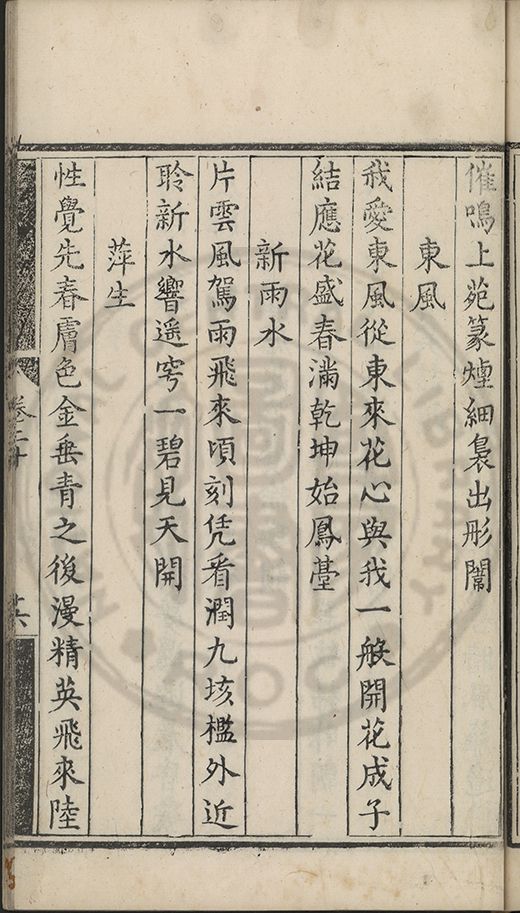 催鳴上苑篆煙細裊出彤闈
東風
我愛東風從東來花心與我一般開花成子
結應花盛春滿乾坤始鳳臺
新雨水
片雲風駕雨飛來頃刻凭看潤九垓檻外近
聆新水響遥穹一碧見天開
萍生
性覺先春膚色金垂青之後漫精英飛來陸
卷二十
共